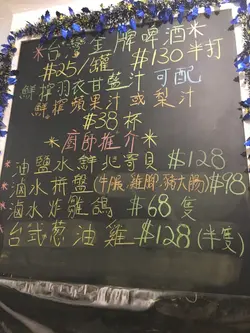 *台灣金牌啤酒*
$25/罐 $130半打
鮮榨羽衣甘藍汁 可配
鮮榨蘋果汁或梨汁
$38杯
*廚師推介*
*油鹽水鮮北寄貝 $128
*滷水拼盤(牛𦟌、雞腳、豬大腸)$98
*滷水炸雞鴿 $68隻
*台式葱油雞 $128(半隻)